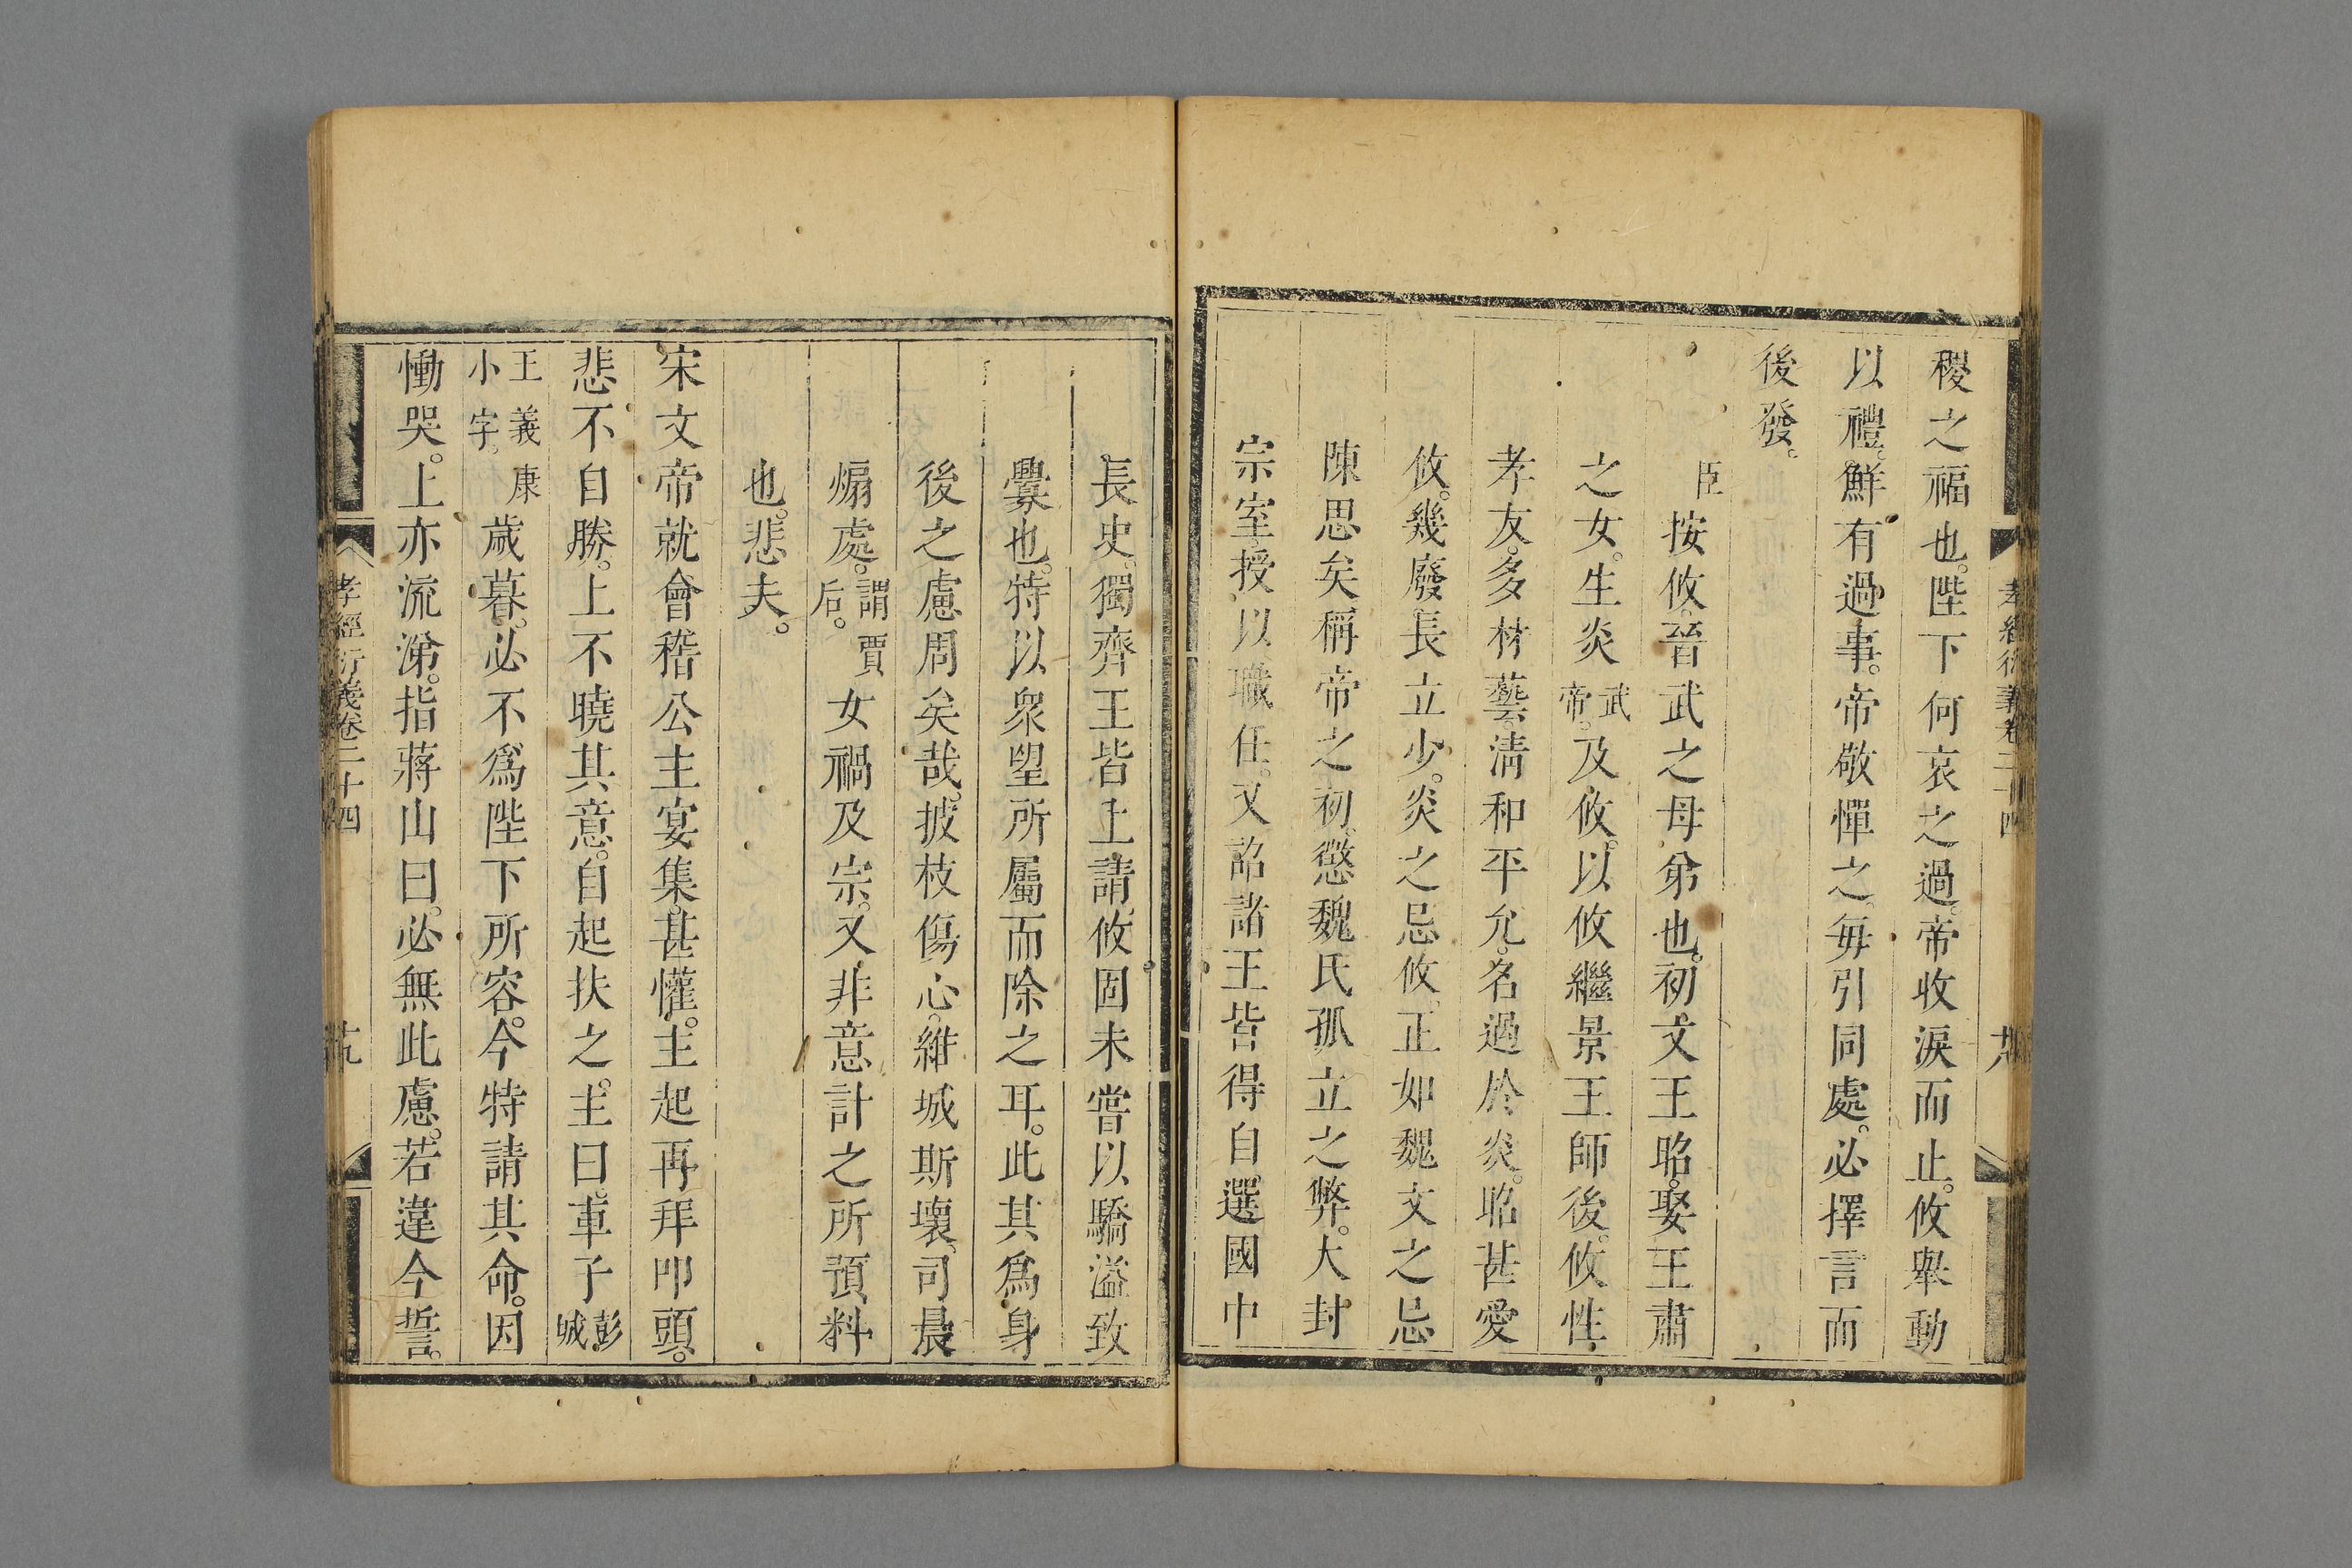 孝經衍義卷二十四
稷之福也。陛下何哀之過。帝收淚而止。攸舉動
以禮。鮮有過事。帝敬憚之。每引同處。必擇言而
後發。
臣按攸。晉武之母弟也。初文王昭。娶王肅
之女。生炎武帝。及攸。以攸繼景王師後。攸性
孝友。多材藝。清和平允。名過於炎。昭甚愛
攸。幾廢長立少。炎之忌攸。正如魏文之忌
陳思矣。稱帝之初。懲魏氏孤立之弊。大封
宗室。授以職任。又詔諸王皆得自選國中
長史。獨齊王皆上請。攸固未嘗以驕溢致
釁也。特以眾望所屬而除之耳。此其為身
後之慮周矣哉。披枝傷心。維城斯壞。司晨
煽處。謂賈后。女禍及宗。又非意計之所預料
也。悲夫。
宋文帝就會稽公主宴集。甚懽。主起再拜叩頭。
悲不自勝。上不曉其意。自起扶之。主曰。車子彭城
王義康小字。歲暮。必不爲陛下所容。今特請其命。因
慟哭。上亦流涕。指蔣山曰。必無此慮。若違今誓。
孝經衍義卷二十四